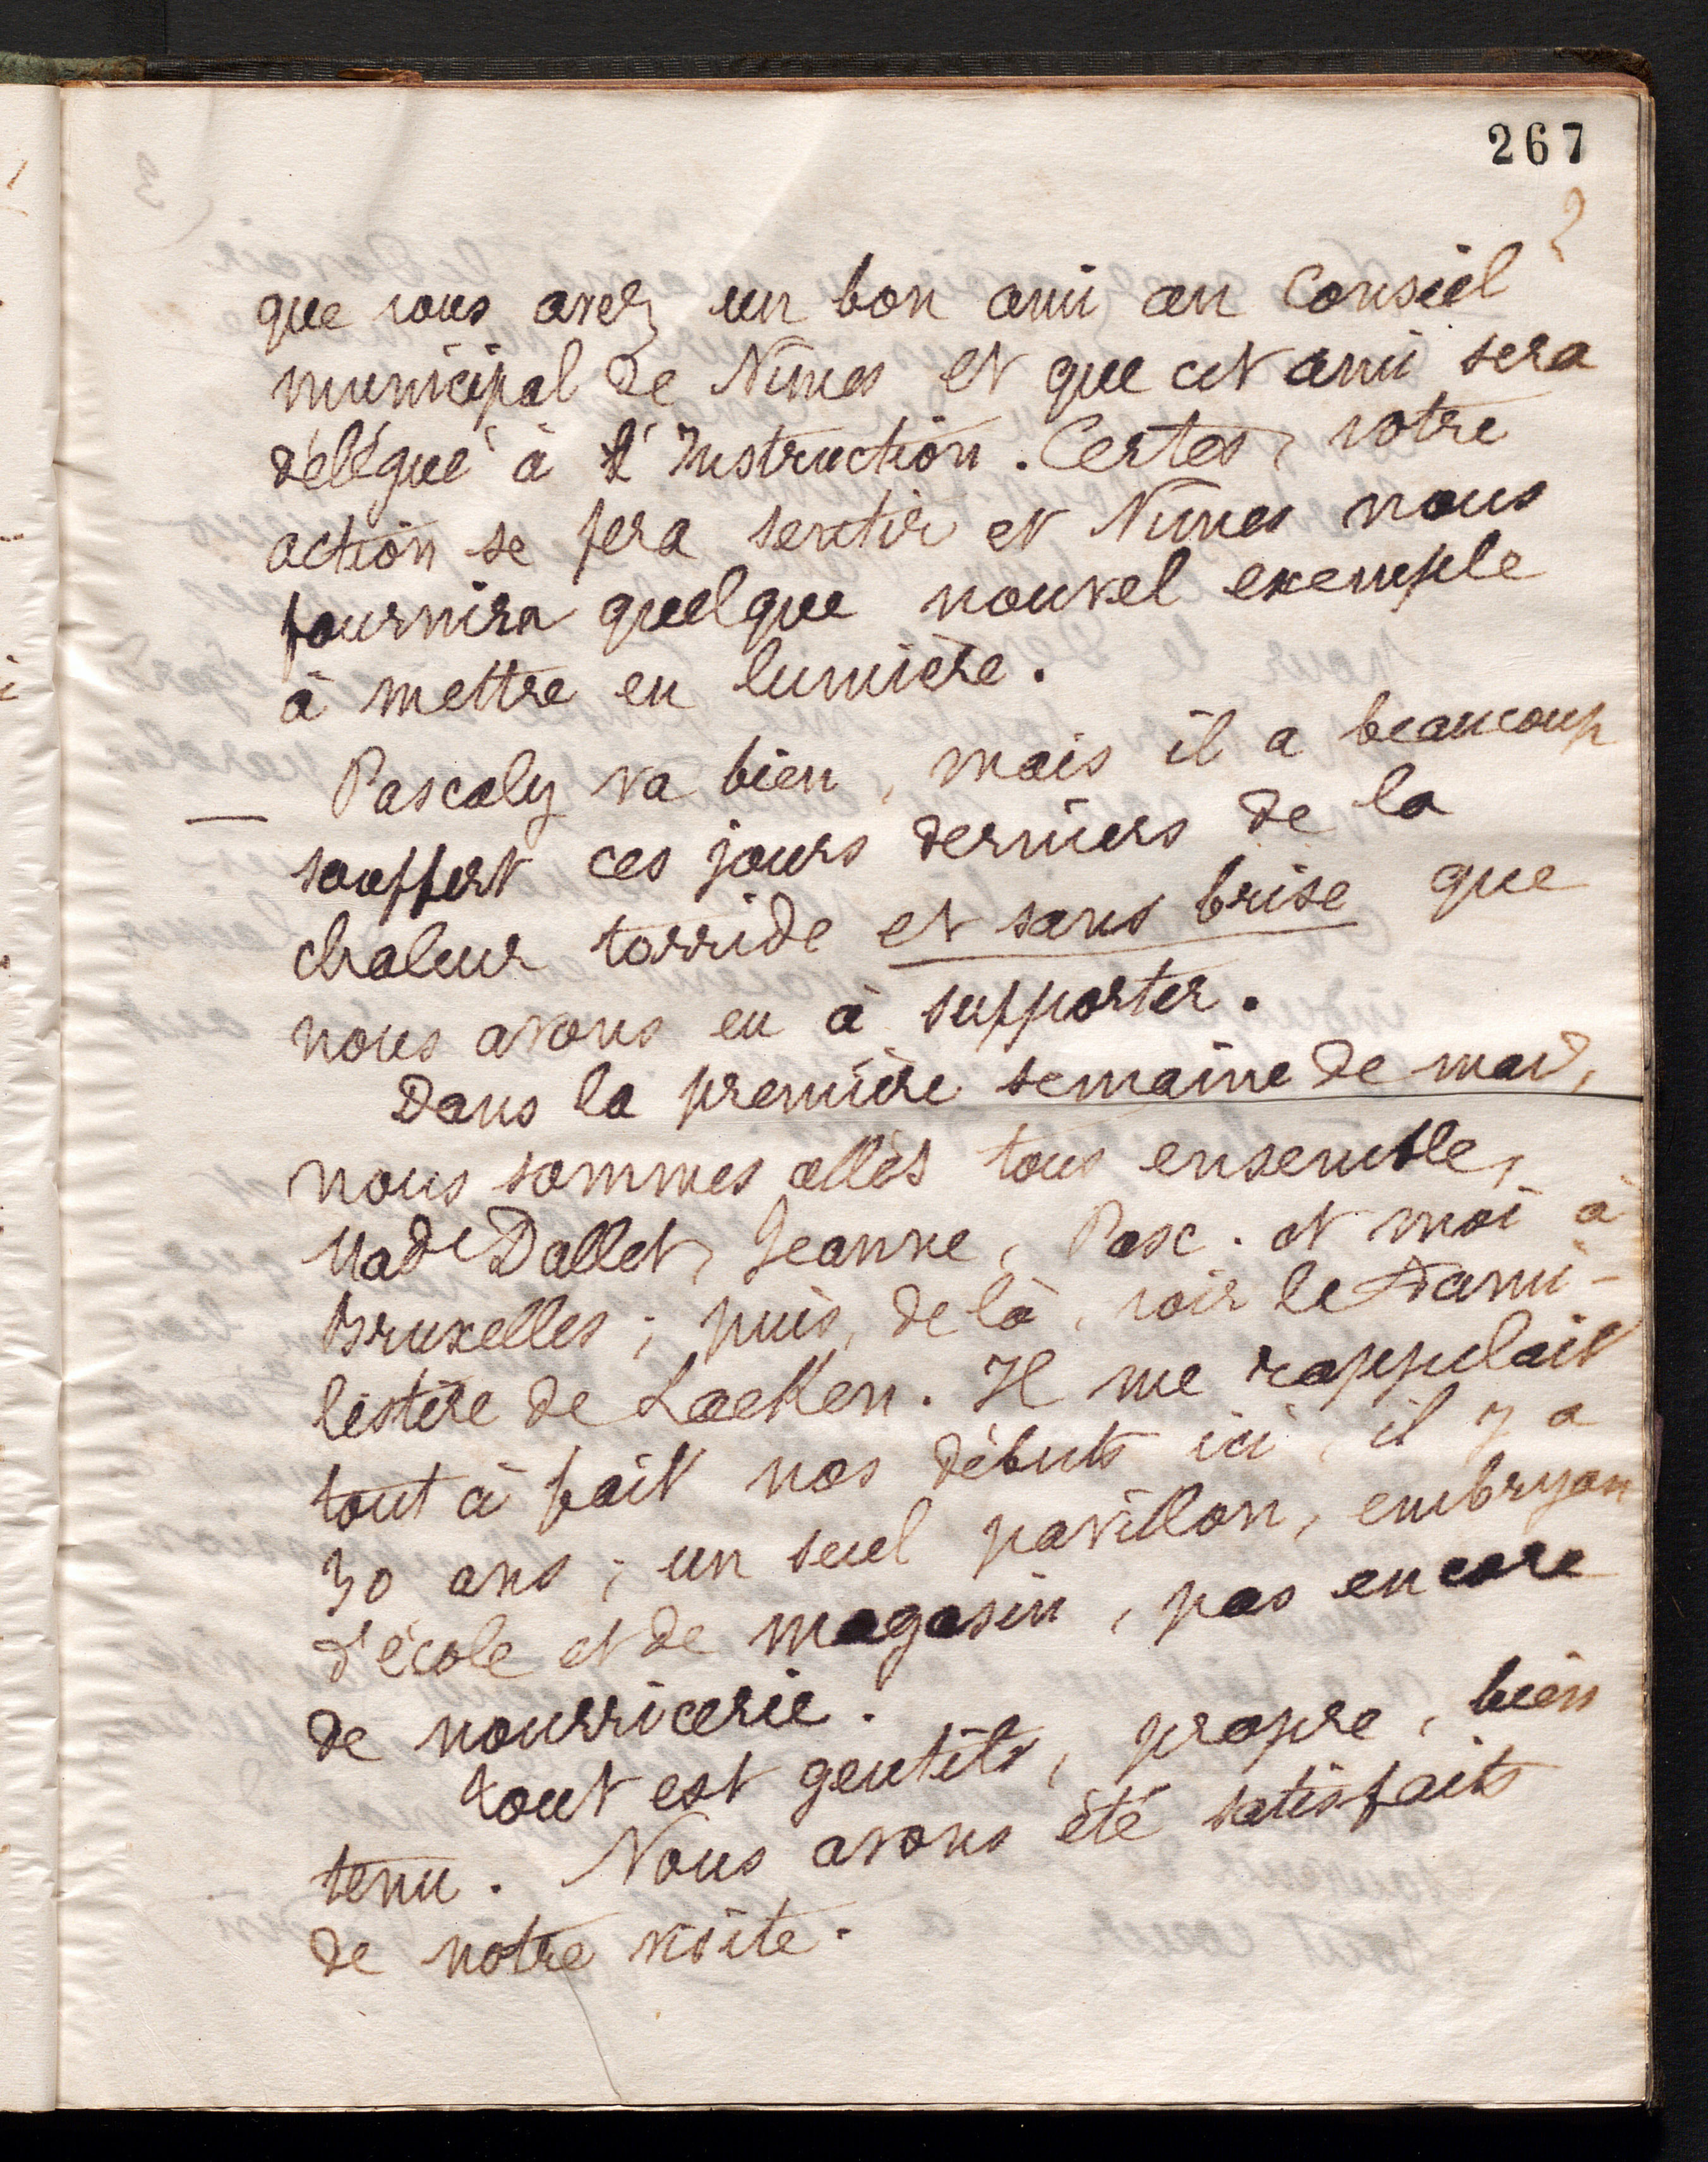 267
2
que vous avez un bon ami au Conseil
municipal de Nimes et que cet ami sera
délégué à l'Instruction. Certes, votre
action se fera sentir et Nimes nous
fournira quelque nouvel exemple
à mettre en lumière.
— Pascaly va bien, mais il a beaucoup
souffert ces jours derniers de la
chaleur torride et sans brise que
nous avons eu à supporter.
Dans la première semaine de mai,
nous sommes allés tous ensemble,
Made Dallet, Jeanne, Pasc. et moi à
Bruxelles ; puis, de là, voir le Fami-
listère de Laeken. Il me rappelait
tout à fait nos débuts ici, il y a
30 ans ; un seul pavillon, embryon
d'école et de magasin, pas encore
de nourricerie.
tout est gentil, propre, bien
tenu. Nous avons été satisfaits
de notre visite.